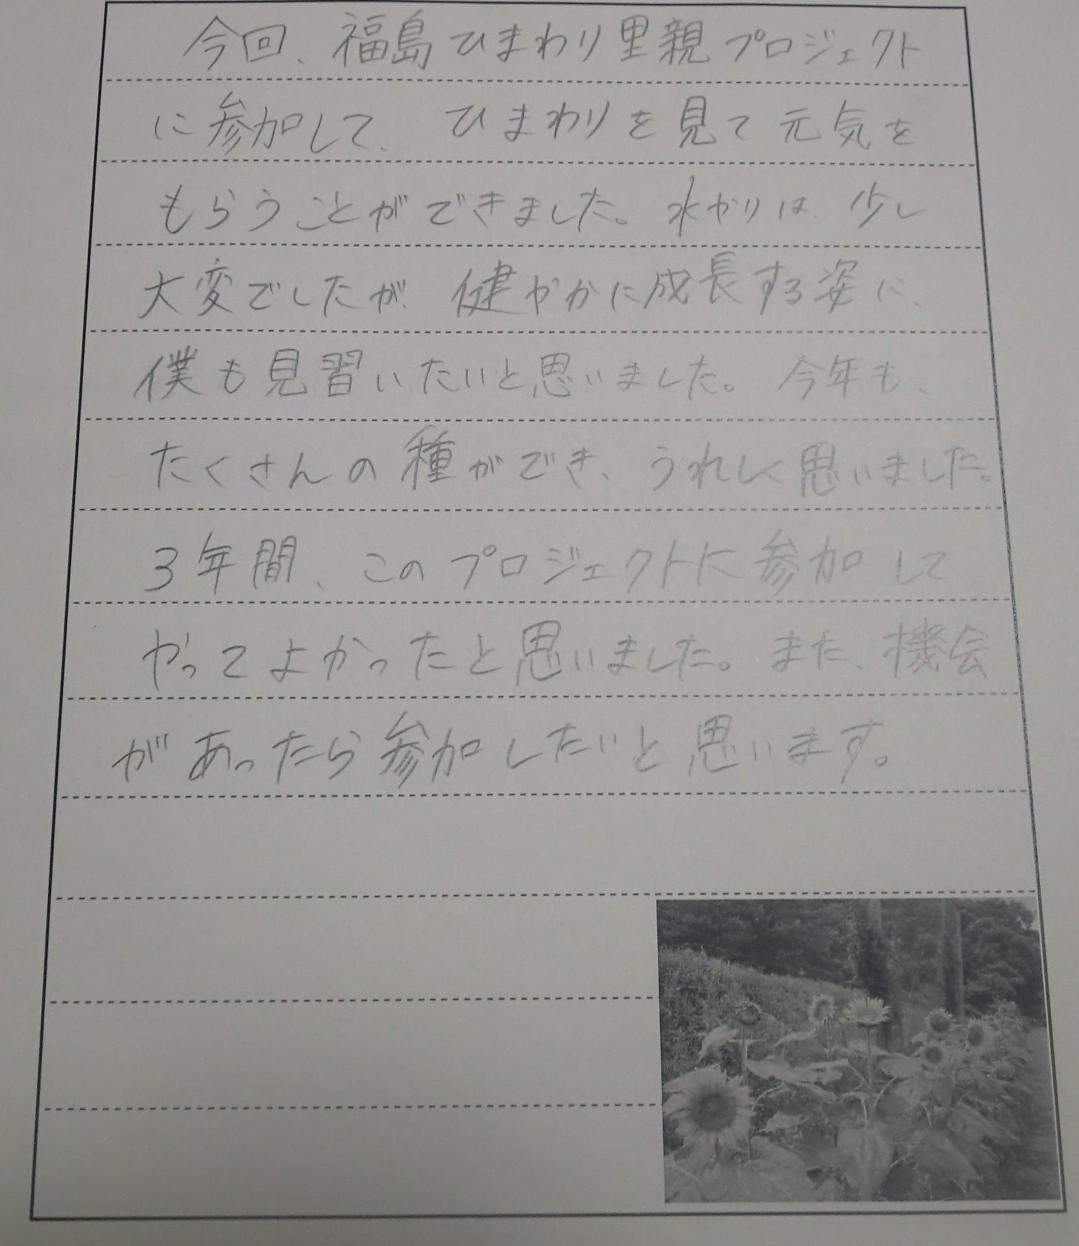 今回、福島ひまわり里親プロジェクト
に参加して、ひまわりを見て元気を
もらうことができました。水やりは、少し
大変でしたが、健やかに成長する姿に、
僕も見習いたいと思いました。今年も、
たくさんの種ができ、うれしく思いました。
3年間、このプロジェクトに参加して
やってよかったと思いました。また、機会
があったら参加したいと思います。